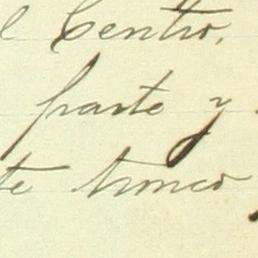 l Centro,
parte y
te tronco